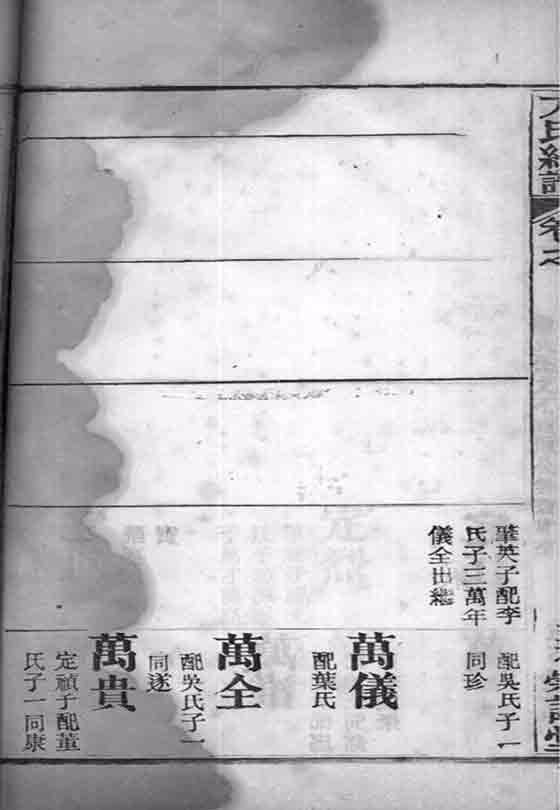 氏
卷
肇英子配李
氏子三萬年
儀全出繼
配吳氏子一
同珍
萬儀
配葉氏
萬全
配吳氏子一
同遂
萬貴
定禎子配董
氏子一同康